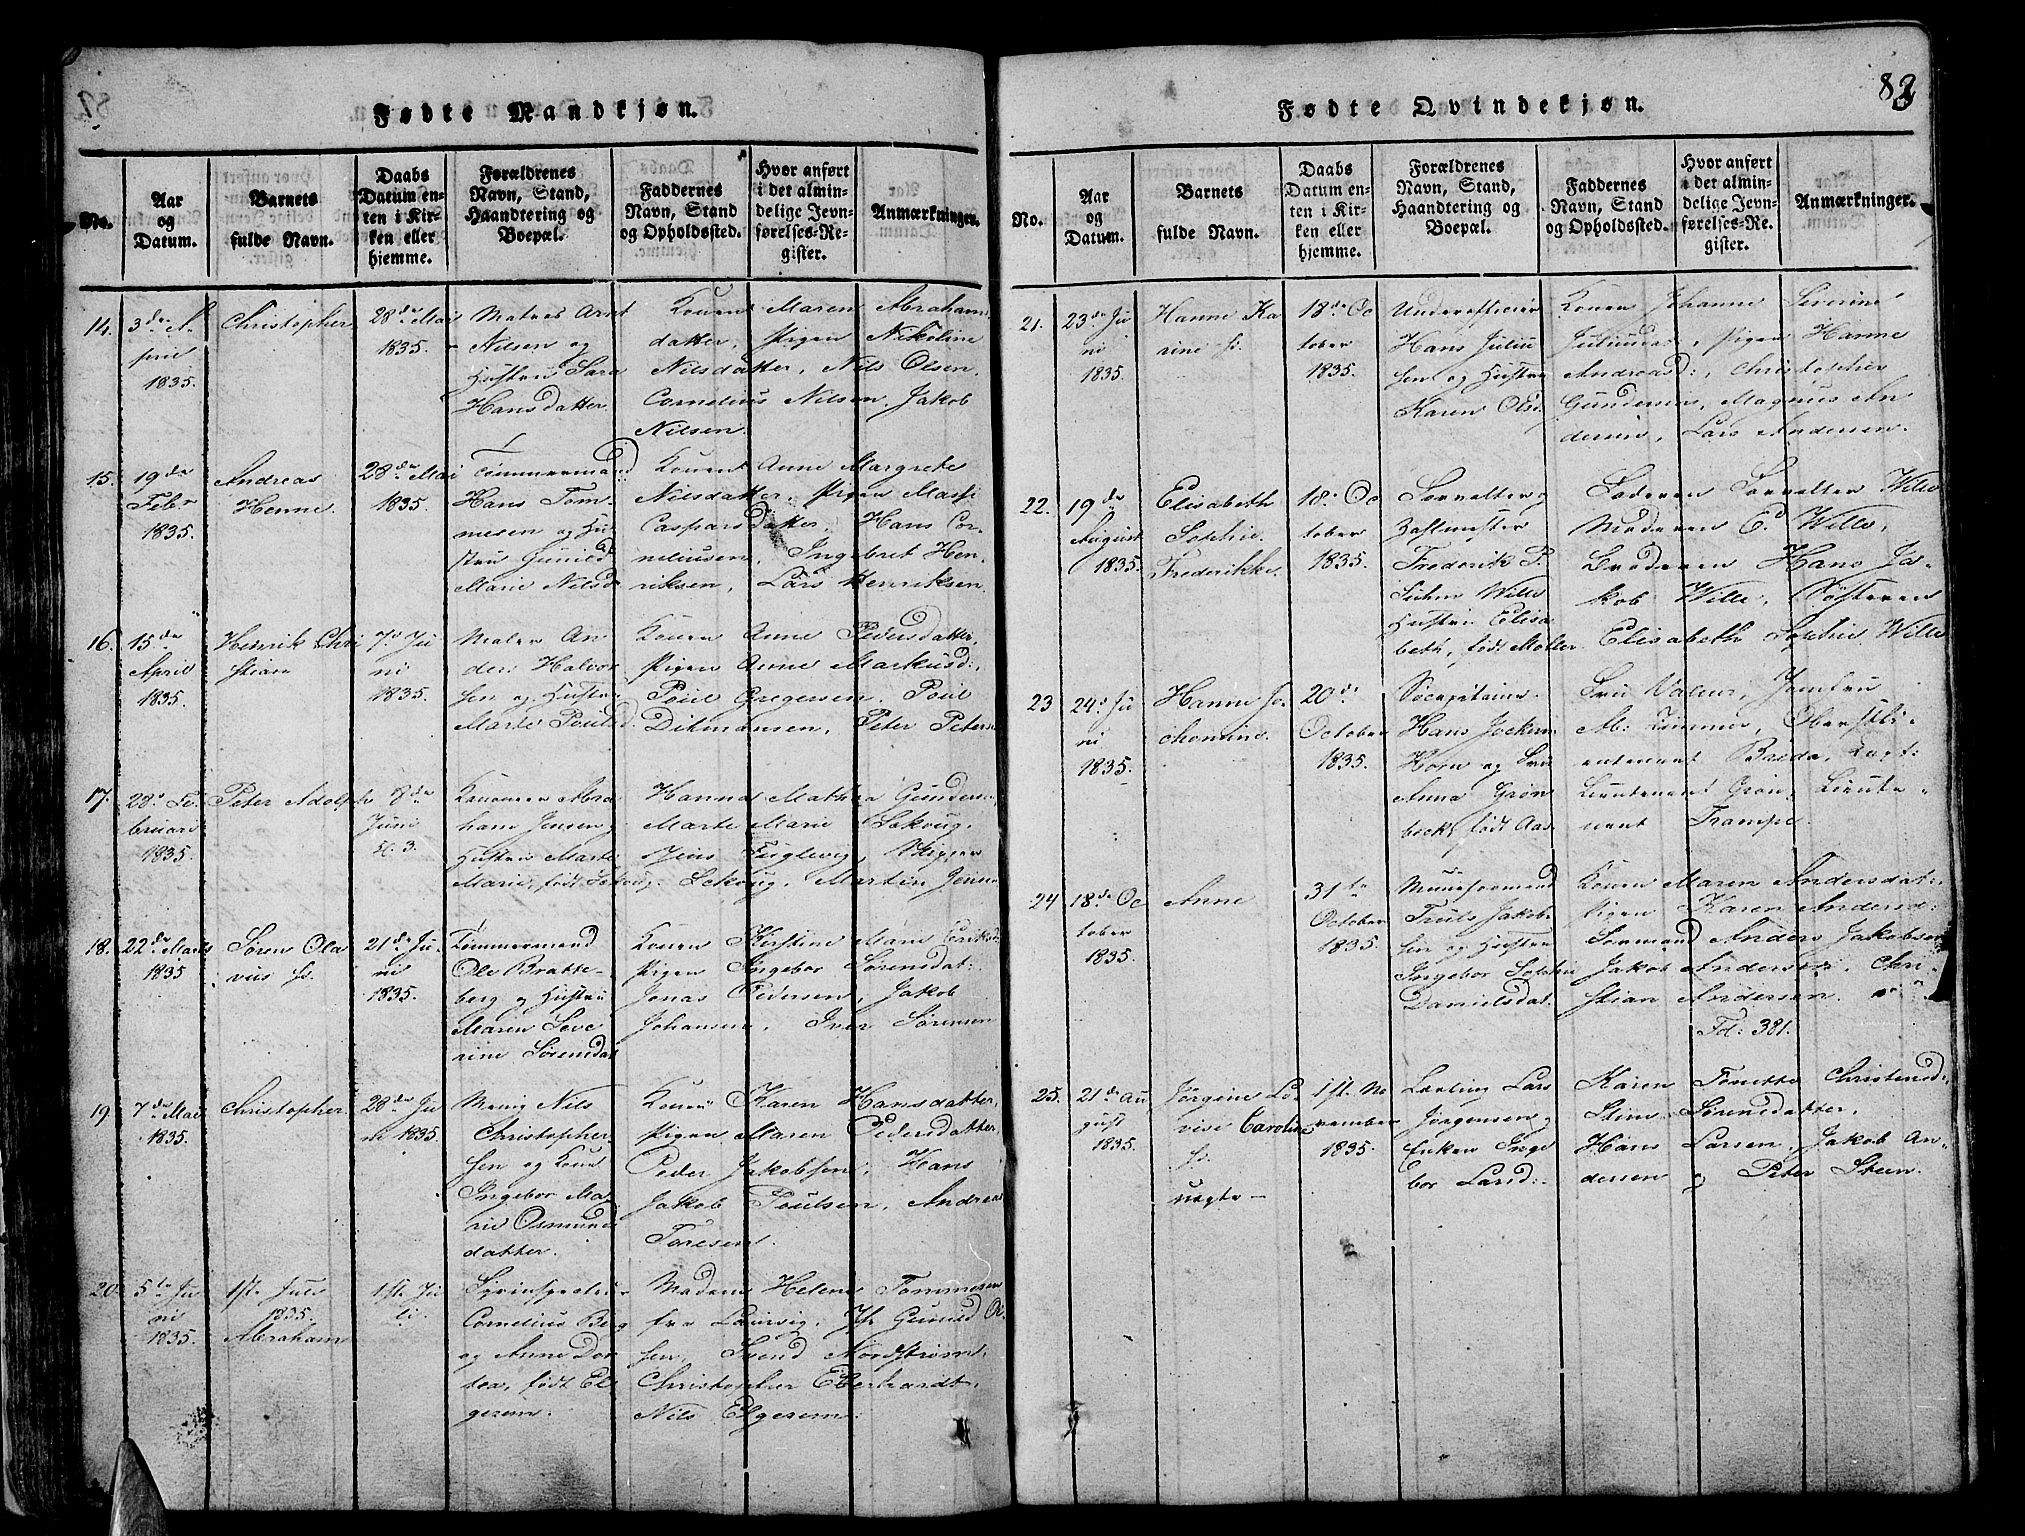 Fødte Mandkjøn.
No.
Aar
og
Datum.
Barnets
fulde Navn.
Daabs
Datum en-
ten i Kir-
ken eller
hjemme.
Forældrenes
Navn, Stand,
Haandtering og
Boepæl.
Faddernes
Navn, Stand
og Opholdssted.
Hvor anført
i det almin-
delige Jevn-
førelses-Re-
gister.
Anmærkninger.
14.
3de A-
pril
1835.
Christopher
28de Mai
1835.
Matros Arnt
Nilsen og
Hustru Sara
Hansdatter
Konen Maren Abrahams
datter, Pigen Nikoline
Nilsdatter, Nils Olsen,
Cornelius Nilsen, Jakob
Nilsen.
15.
19de
Febr
1835.
Andreas
Henne
28de Mai
1835.
Tømmermand
Hans Tom-
mesen og Hu-
stru Gunild
Marie Nilsd
Konen Anne Margrete
Nilsdatter, Pigen Massi
Caspersdatter, Hans Cor-
neliusen, Ingebret Hen-
riksen, Lars Henriksen.
16.
15de
April
1835.
Henrik Chri
stian
7. Ju
ni
1835.
Maler An
ders Halvor
sen og Hustru
Marte Pouls d
Konen Anne Pedersdatter,
Pigen Anne Markusd:,
Poul Gregersen, Poul
Ditmansen, Peter Peters
17.
28. Fe
bruari
1835.
Peter Adolph
8de
Juni
Abra
ham Jensen
Hustru Marte
Marie, født
Hanna Mathea Gunders
Marte Marie
Jens Fuglevig, Skipper
Martin Jens
18.
22de Marts
1835
Søren Ola
vus
21de Ju-
ni
1835.
Tømmermand
Ole Bratte-
berg og Hustru
Maren Seve
rine Sørensdat
Konen Kirstine Marie
Pigen Ingebor Sørensdat:
Jonas Pedersen, Jakob
Johansen, Iver Sørensen
19.
7de Mai
1835.
Christopher
28de Ju
ni 1835.
Nils
Christopher
sen og Kone
Ingebor Ma-
rie Osmunds
datter.
Konen Karen Hansdatter,
Pigen Maren Pedersdatter,
Peder Jakobsen, Hans
Jakob Poulsen, Andreas
Toresen.
20.
5te Ju
ni
1835.
1ste Juli
1835.
Abraham
1ste Ju
li.
Cornelius Berg
og Anne Dor
tea, født El
gerem.
Madme Helene Tommesen
fra Laurvig, Jfr Gunild Ol
sen, Svend Nordstrøm,
Christopher Eberhardt,
Nils Elgerem.
83
Fødte Qvindekjøn.
No.
Aar
og
Datum.
Barnets
fulde Navn.
Daabs
Datum en-
ten i Kir-
ken eller
hjemme.
Forældrenes
Navn, Stand,
Haandtering og
Boepæl.
Faddernes
Navn, Stand
og Opholdssted.
Hvor anført
i det almin-
delige Jevn-
førelses-Re-
gister.
Anmærkninger.
21.
23de Ju
ni
1835.
Hanne Ka
rine
18de Oc
tober
1835.
Underofficier
Hans Juliu
sen og Hustru
Karen Olsd.
Konen Johanne Severine
Juliusdr, Pigen Hanne
Andreasd:, Christopher
Gundersen, Magnus An
dersen, Lars Andersen.
22.
19de
August
1835.
Elisabeth
Sophie
Frederikke
18. Oc
tober
1835.
Forvalter og
Zahlmester
Frederik P.
Suhm Wille
Hustru Elisa
beth, født Møller
Faderen Forvalter Wille
Moderen Wille,
Broderen Hans Ja-
kob Wille, Søsteren
Elisabeth Sophie Wille
23
24. Ju
ni
1835.
Hanne Jo
chomine.
20de
October
1835.
Søecapitaine
Hans Jochum
Horn og Fru
Anna Grøn
beck, født Aas
Fru Jomfru
M. Zimmer, Oberstli-
eutenant Breda,
Lieutenant Grøn, Lieute-
nant Trampe.
24
18de Oc
tober
1835.
Anne
31te
October
1835.
Muurformand
Truls Jakob-
sen og Hustru
Ingebor Sophie
Danielsdat.
Konen Maren Andersdat:,
Pigen Karen Andersd:
Formand Anders Jakobsen
Jakob Andersen, Chri-
stian Andersen.
Fol: 381.
25.
21de Au
gust
1835.
Jørgine Lo-
vise Caroline
uægte –
1ste No
vember
1835.
Lærling Lars
Jørgensen
Enken Inge
bor Larsd:
Karen Tonette Christensd:
Stine Sørensdatter,
Hans Larsen, Jakob An-
dersen og Peter Steen.